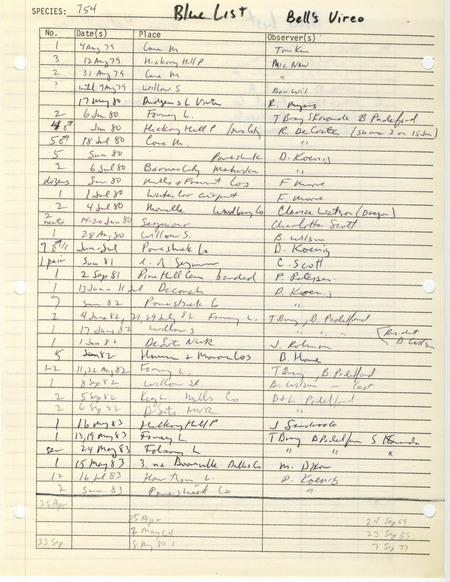 SPECIES: 754 Blue List Bell's Vireo
No. Date(s) Place Observer(s)
1 4 Aug 79 Cone M. Tom Ken
3 12 Aug 79 Hickory Hill P
2 31 Aug 79 Cone M. "
? until 9 Aug 79 Willow S
17 May 80 R. Myers
2 6 Jun 80 Forney L. T Bray S Kovanda B Padelford
Jun 80 Hickory Hill P R. DeCoster
5 18 Jul 80 Cone M. "
5 Sum 80 Poweshiek D. Koenig
2 6 Jul 80 Mahaska
dozens Sum 80 Mills + Fremont Cos F Moore
1 1 Jul 80 Water airport F. Moore
2 4 Jul 80 Moville Woodbury Co Clarice Watson (Oregon)
2 nests 14-20 Jun 80 Seymour Charlotte Scott
1 28 Aug 80 Willow S. B. Wilson
Jun-Jul Poweshiek Co D Koenig
1 pair Sum 81 Seymour C. Scott
1 2 Sep 81 Pine Hill Cem banded P. Petersen
1 13 Jun - 11 Jul Decorah D. Koenig
7 Sum 82 Poweshiek Co "
2 4 June 82, 21, 29 July 82 Forney L. T Bray, B. Padelford
1 17 June 82 Willow S " "
1 1 Jun 82 DeSoto NWR J. Robinson
5 Jun 82 + Monroe Cos B. Howe
1-2 11, 22 Aug 82 Forney L. T Bray, B Padelford
1 8 Sep 82 Willow Sl. B. Wilson - last
2 5 Sep 82 Keg L Mills Co B+L Padelford
2 6 Sep 82 DeSoto NWR "
1 16 May 83 Hickory Hill P J Sandrock
1 13, 19 May 83 Forney L T Bray B Padelford S Kovanda
24 May 83 Folsom L " " "
1 15 May 83 3 ne Booneville Dallas Co M. Dixon
12 16 Jul 83 D. Koenig
2 Sum 83 Poweshiek Co "
25 Apr
25 Apr 24 Sep 69
2 May 64 23 Sep 55
23 Sep 8 May 80 7 Sep 77